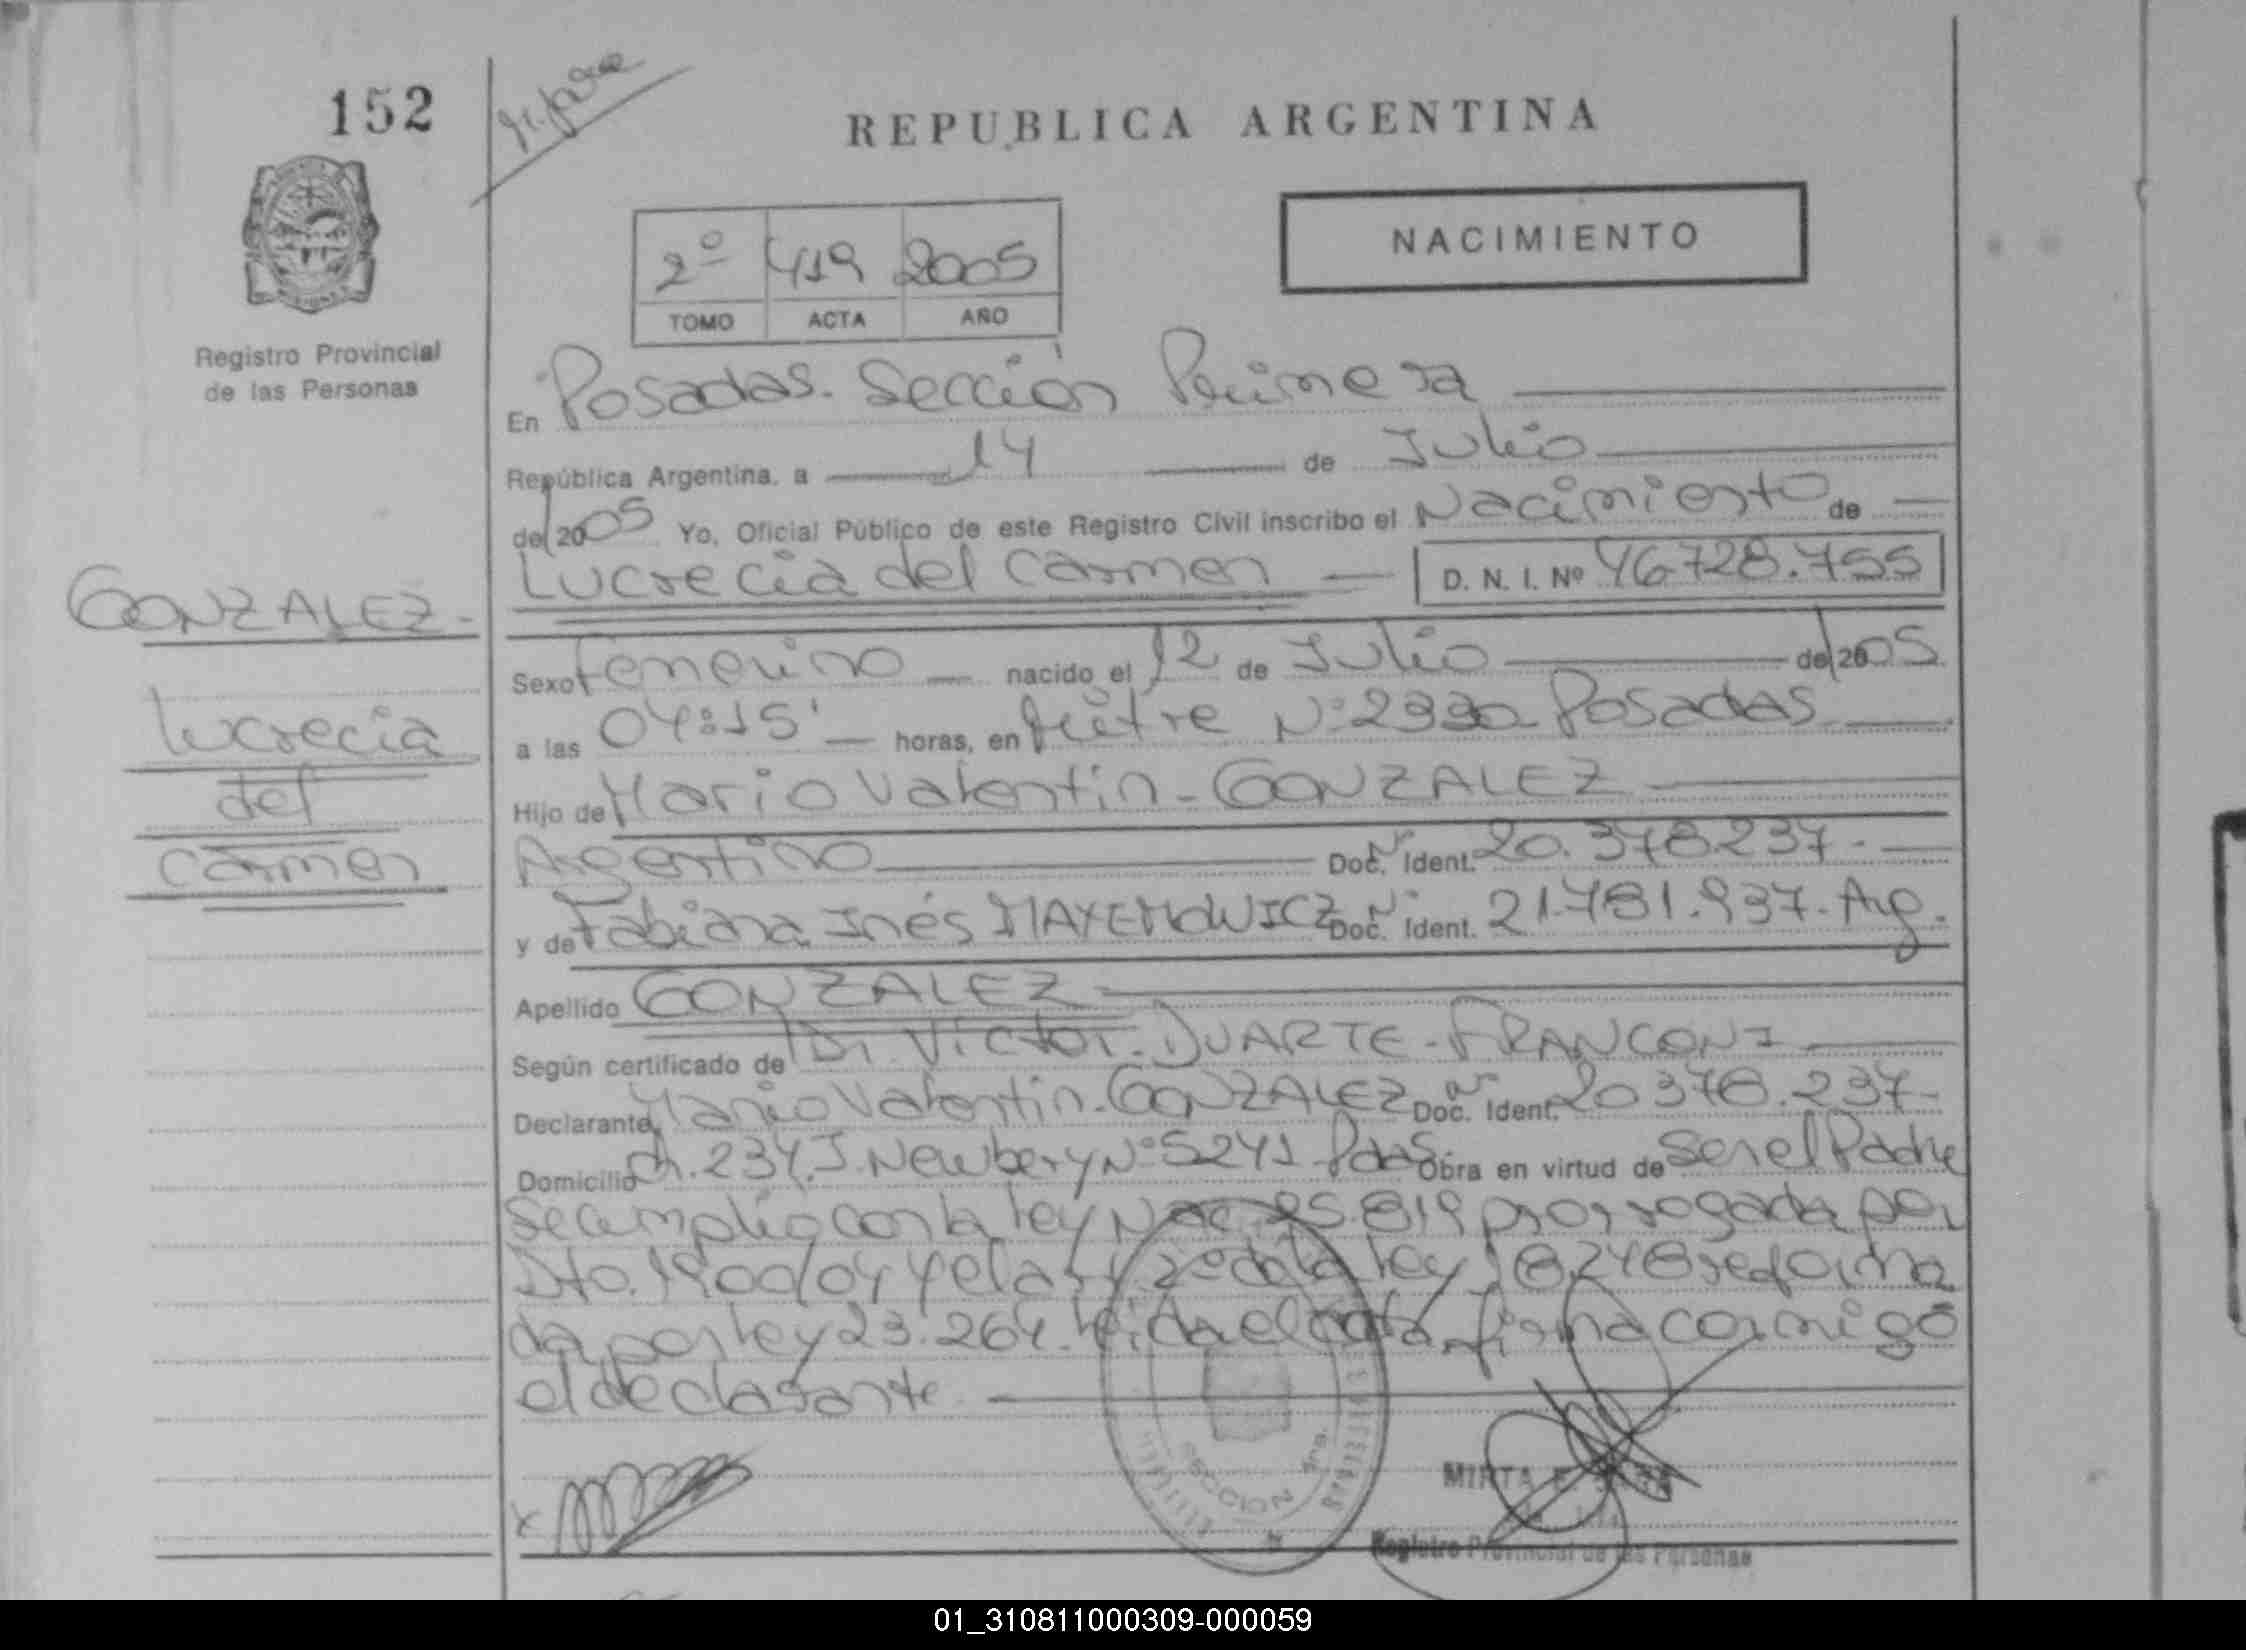 152
REPUBLICA ARGENTINA
NACIMIENTO
2º 419 2005
TOMO ACTA AÑO
Registro Provincial
de las Personas
En Posadas. Sección Primera
República Argentina, a 14 de Julio
del 2005 Yo, Oficial Público de este Registro Civil inscribo el Nacimiento de
Lucrecia del Carmen D. N. I. Nº 46.728.755
GONZALEZ.
Lucrecia
del
Carmen
Sexo Femenino nacido el 12 de Julio del 2005
a las 04:15' horas, en Mitre Nº 2330 Posadas
Hijo de Mario Valentin GONZALEZ
Argentino Doc. Nº Ident. 20.378.237.
y de Fabiana Inés Doc. Nº Ident. 21.781.937. Arg.
Apellido GONZALEZ
Según certificado de Dr. Victor DUARTE FRANCONI
Declarante Mario Valentin GONZALEZ Doc. Nº Ident. 20.378.237
Domicilio Ch. 234 J. Newbery Nº 5241 Pdas. Obra en virtud de ser el Padre
Se cumplió con la ley Nac. 25.819 prorrogada por
Dto. 1900/04 y el art. 2º de la ley 18248 reforma
da por ley 23.264. Leida el acta, firma conmigo
el declarante
x
SECCION
MIRTA E.
Registro Provincial de las Personas
01_310811000309-000059